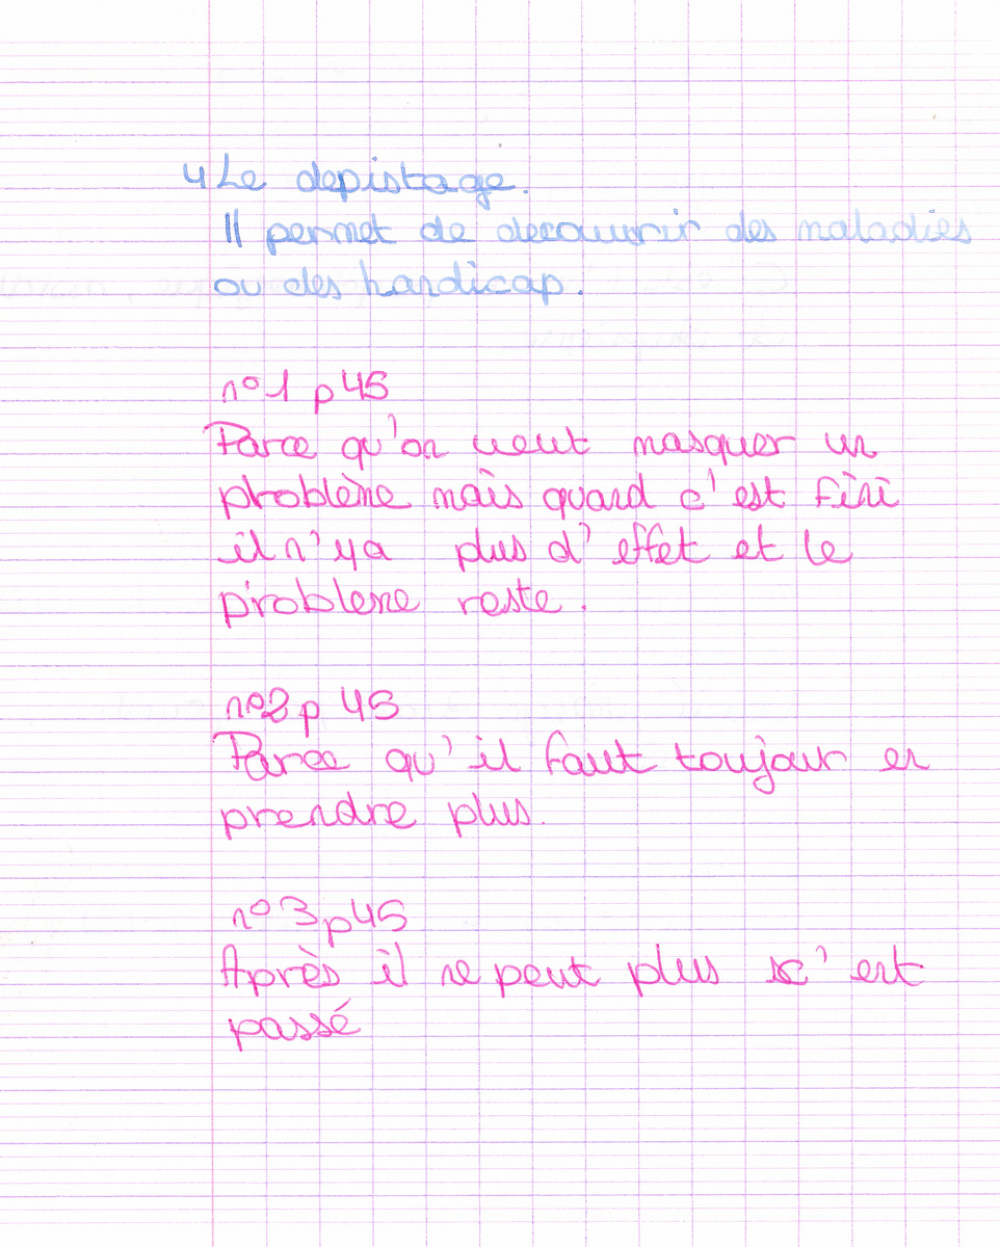 4 Le depistage.
Il permet de decouvrir des maladies
ou des handicap.
n°1 p45
Parce qu'on veut masquer un
problème mais quand c'est fini
il n'y a plus d'effet et le
problème reste.
n°2 p 45
Parce qu'il faut toujour en
prendre plus.
n°3 p45
Après il ne peut plus c'est
passé